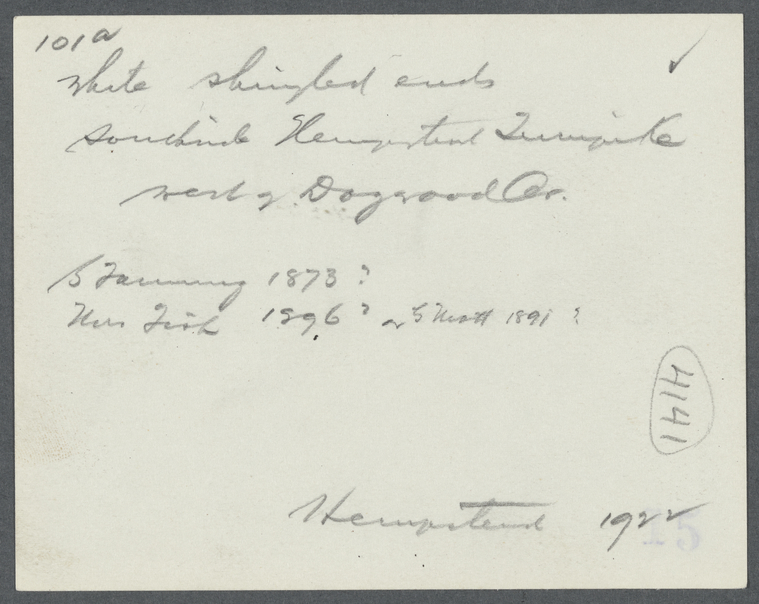 101a
White shingled ends
southside Hempstead Turnpike
west of Dogwood Av.
S Fanning 1873?
Mrs Fish 1896? or S Mott 1891?
4141
Hempstead 1922
45